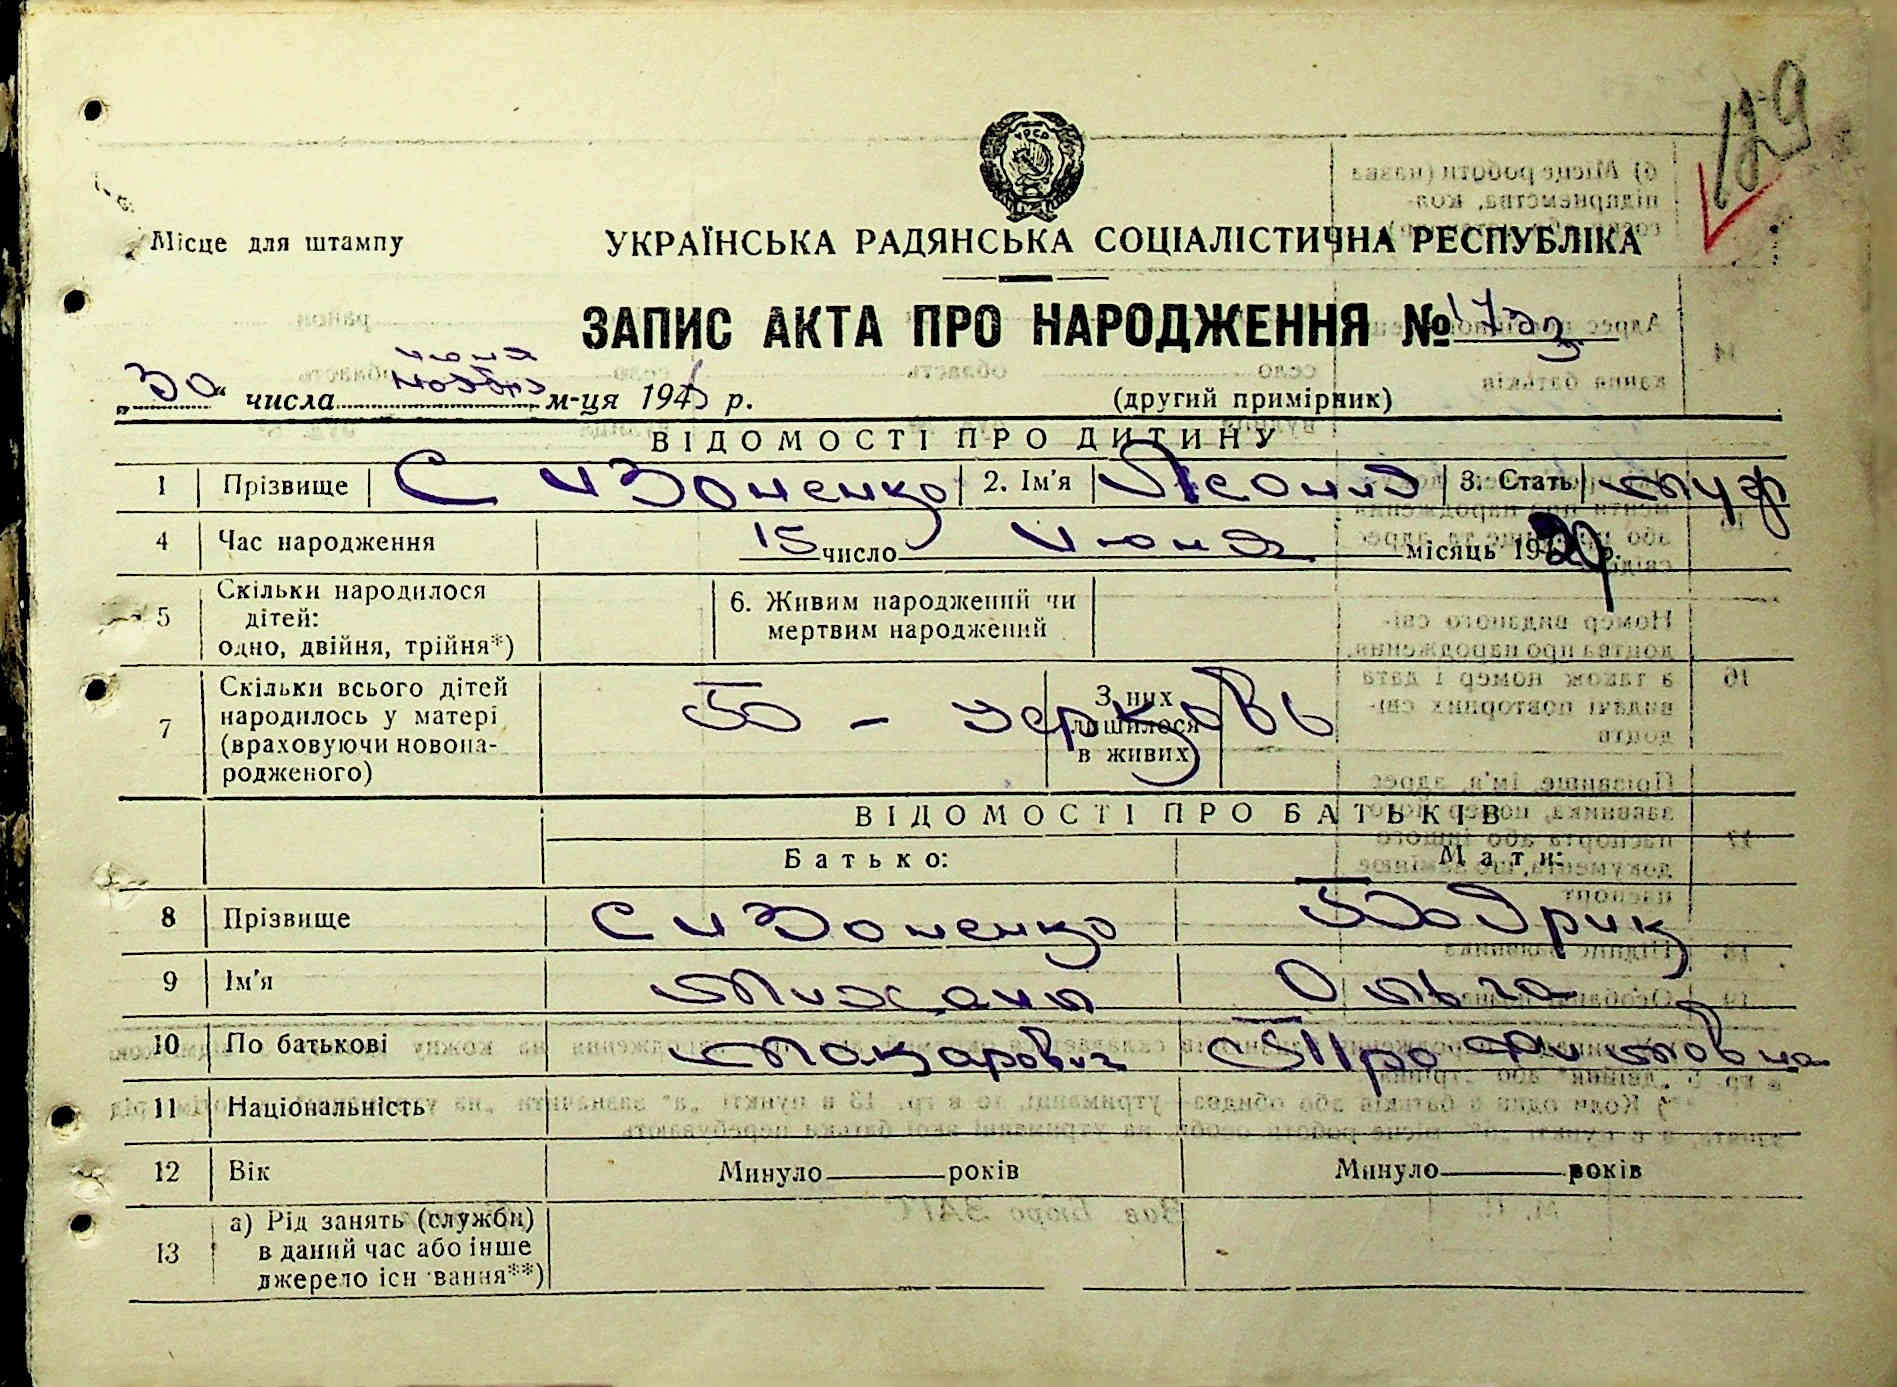 129
УРСР
Місце для штампу
УКРАЇНСЬКА РАДЯНСЬКА СОЦІАЛІСТИЧНА РЕСПУБЛІКА
ЗАПИС АКТА ПРО НАРОДЖЕННЯ №
июня
„30“ числа ноября м-ця 194 р. (другий примірник)
ВІДОМОСТІ ПРО ДИТИНУ
1 Прізвище Сидоненко 2. Ім'я Леонид 3. Стать муж
4 Час народження 15 число июня місяць 19 р.
5 Скільки народилося дітей: одно, двійня, трійня*) 6. Живим народжений чи мертвим народжений
7 Скільки всього дітей народилось у матері (враховуючи новонародженого) З них лишилося в живих
церковь
ВІДОМОСТІ ПРО БАТЬКІВ
Батько: Мати:
8 Прізвище Сидоненко Бодрик
9 Ім'я Михаил Ольга
10 По батькові Макарович Трофимовна
11 Національність
12 Вік Минуло років Минуло років
13 а) Рід занять (служби) в даний час або інше джерело існування**)